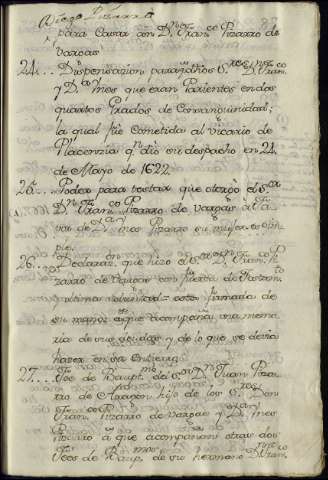 Diego Pizarro
para Casar con D.n Fran.co Pizarro de
Vargas
24... Dispensazion para dhos S.res D.n Fran.co
y D.a Ines que eran Parientes en dos
quartos Grados de Consanguinidad;
la qual fue Cometida al vicario de
Placenzia q.n dio su despacho en 24
de Mayo de 1622
25... Poder para testar que otorgo el S.or
D.n Fran.co Pizarro de Vargas à fa
vor de D.a Ines Pizarro su mujer es Sim
ple.
26... Declaraz.on que hizo el S.or D.n Fran.co Pi
zarro de Vargas con fuerza de Testam.to
y ultima voluntad = esta firmada de
su mano à que acompaña una memo
ria de sus deudas y de lo que se devia
hazer en su Entierro
27... Fee de Baupt.mo del S.or D.n Juan Piza
rro de Aragon hijo de los S.res Don
Fran.co Pizarro de Vargas y D.a Ines
Pizarro à que acompañan otras dos
Fees de Baup.mo de su hermano D.n Fran.co